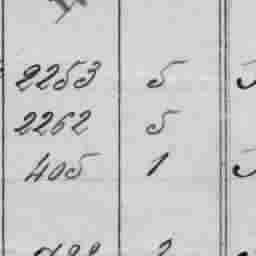 2253 5
2262 5
405 1